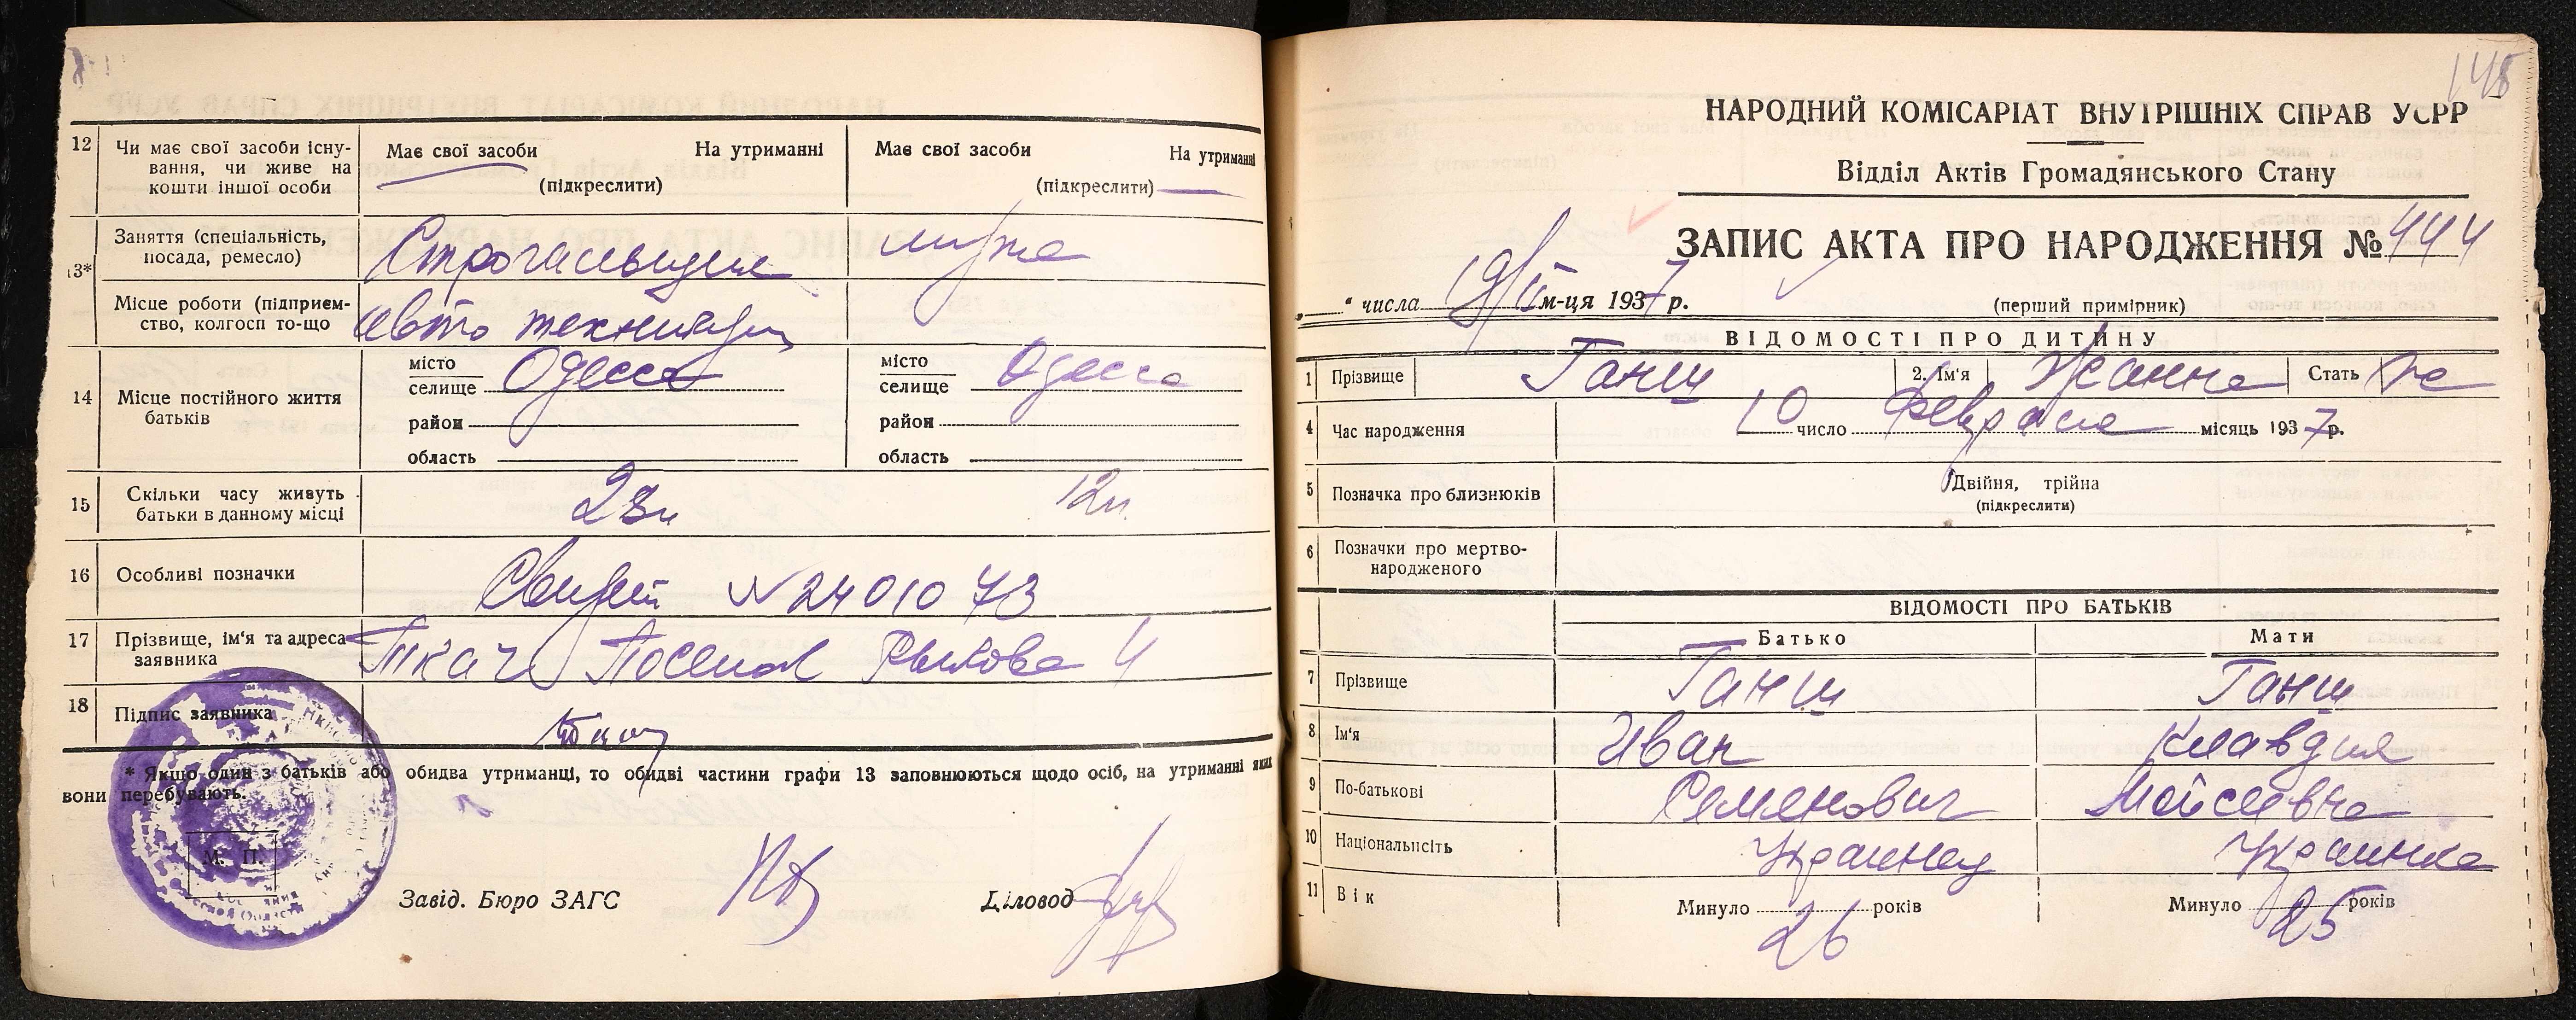 12 Чи має свої засоби існування, чи живе на кошти іншої особи
Має свої засоби На утриманні
(підкреслити)
Має свої засоби На утриманні
(підкреслити)
13*
Заняття (спеціальність, посада, ремесло) Строгальщик мужа
Місце роботи (підприємство, колгосп то-що Авто
14 Місце постійного життя батьків
місто
селище Одесса
район
область
місто
селище Одесса
район
область
15 Скільки часу живуть батьки в данному місці 12л
16 Особливі позначки N 2401073
17 Прізвище, ім'я та адреса заявника Ткач Поселок Рыкова 4
18 Підпис заявника
* Якщо один з батьків або обидва утриманці, то обидві частини графи 13 заповнюються щодо осіб, на утриманні яких
вони перебувають.
М. П.
Завід. Бюро ЗАГС
Діловод
148
НАРОДНИЙ КОМІСАРІАТ ВНУТРІШНІХ СПРАВ УСРР
Відділ Актів Громадянського Стану
ЗАПИС АКТА ПРО НАРОДЖЕННЯ № 444
" " числа 19/II м-ця 1937 р.
(перший примірник)
ВІДОМОСТІ ПРО ДИТИНУ
1 Прізвище Ганш 2. Ім'я Жанна Стать ж
4 Час народження 10 число Февраля місяць 1937 р.
5 Позначка про близнюків Двійня, трійна
(підкреслити)
6 Позначки про мертвонародженого
ВІДОМОСТІ ПРО БАТЬКІВ
Батько Мати
7 Прізвище Ганш Ганш
8 Ім'я Иван Клавдия
9 По-батькові Семенович Мойсеевна
10 Національність Украинец Украинка
11 Вік Минуло 26 років Минуло 25 років